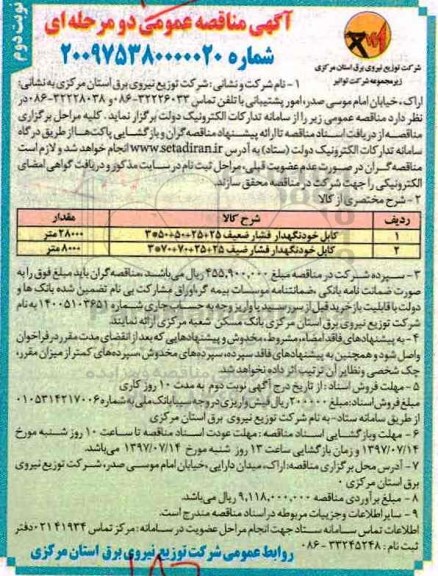 نوبت دوم
آگهی مناقصه عمومی دو مرحله ای
شماره ۲۰۰۹۷۵۳۸۰۰۰۰۰۲۰
شرکت توزیع نیروی برق استان مرکزی
زیرمجموعه شرکت توانیر
۱ - نام شرکت و نشانی : شرکت توزیع نیروی برق استان مرکزی به نشانی:
اراک، خیابان امام موسی صدر، امور پشتیبانی با تلفن تماس ۳۲۲۲۶۰۳۳-۰۸۶ و ۳۲۲۲۸۰۳۸-۰۸۶ در
نظر دارد مناقصه عمومی زیر را از سامانه تدارکات الکترونیک دولت برگزار نماید . کلیه مراحل برگزاری
مناقصه از دریافت اسناد مناقصه تا ارائه پیشنهاد مناقصه گران و بازگشایی پاکت ها از طریق درگاه
سامانه تدارکات الکترونیک دولت (ستاد) به آدرس www.setadiran.ir انجام خواهد شد و لازم است
مناقصه گران در صورت عدم عضویت قبلی، مراحل ثبت نام در سایت مذکور و دریافت گواهی امضای
الکترونیکی را جهت شرکت در مناقصه محقق سازند.
۲ - شرح مختصری از کالا
ردیف شرح کالا مقدار
۱ کابل خودنگهدار فشار ضعیف ۲۵+۲۵+۵۰+۵۰*۳ ۲۸۰۰۰ متر
۲ کابل خودنگهدار فشار ضعیف ۲۵+۲۵+۷۰+۷۰*۳ ۸۰۰۰ متر
۳ - سپرده شرکت در مناقصه مبلغ ۴۵۵,۹۰۰,۰۰۰ ریال می باشد. مناقصه گران باید مبلغ فوق را به
صورت ضمانت نامه بانکی، ضمانتنامه موسسات بیمه گر، اوراق مشارکت بی نام تضمین شده بانک ها و
دولت با قابلیت باز خرید قبل از سررسید یا واریز وجه به حساب جاری شماره ۱۴۰۰۵۱۰۳۶۵۱ به نام
شرکت توزیع نیروی برق استان مرکزی بانک مسکن شعبه مرکزی ارائه نمایند.
۴ - به پیشنهادهای فاقد امضاء، مشروط، مخدوش و پیشنهادهایی که بعد از انقضای مدت مقرر در فراخوان
واصل شود و همچنین به پیشنهادهای فاقد سپرده، سپرده های مخدوش، سپرده های کمتر از میزان مقرر،
چک شخصی و نظایر آن ترتیب اثر داده نخواهد شد.
۵ - مهلت فروش اسناد : از تاریخ درج آگهی نوبت دوم به مدت ۱۰ روز کاری
مبلغ فروش اسناد: مبلغ ۲۰۰۰۰۰ ریال فیش واریزی در وجه سیبا بانک ملی به شماره ۰۱۰۵۳۱۴۲۱۷۰۰۶
از طریق سامانه ستاد - به نام شرکت توزیع نیروی برق استان مرکزی
۶ - مهلت و بازگشایی اسناد مناقصه : مهلت عودت اسناد مناقصه تا ساعت ۱۰ روز شنبه مورخ
۱۳۹۷/۰۷/۱۴ و زمان بازگشایی ساعت ۱۳ روز شنبه مورخ ۱۳۹۷/۰۷/۱۴ می باشد.
۷ - آدرس محل برگزاری مناقصه: اراک، میدان دارایی ، خیابان امام موسی صدر، شرکت توزیع نیروی
برق استان مرکزی .
۸ - مبلغ برآوردی مناقصه ۹,۱۱۸,۰۰۰,۰۰۰ ریال می باشد.
۹ - سایر اطلاعات و جزییات مربوطه در اسناد مناقصه مندرج است.
اطلاعات تماس سامانه ستاد جهت انجام مراحل عضویت در سامانه : مرکز تماس ۴۱۹۳۴-۰۲۱ دفتر
ثبت نام : ۳۳۲۴۵۲۴۸ - ۰۸۶
روابط عمومی شرکت توزیع نیروی برق استان مرکزی